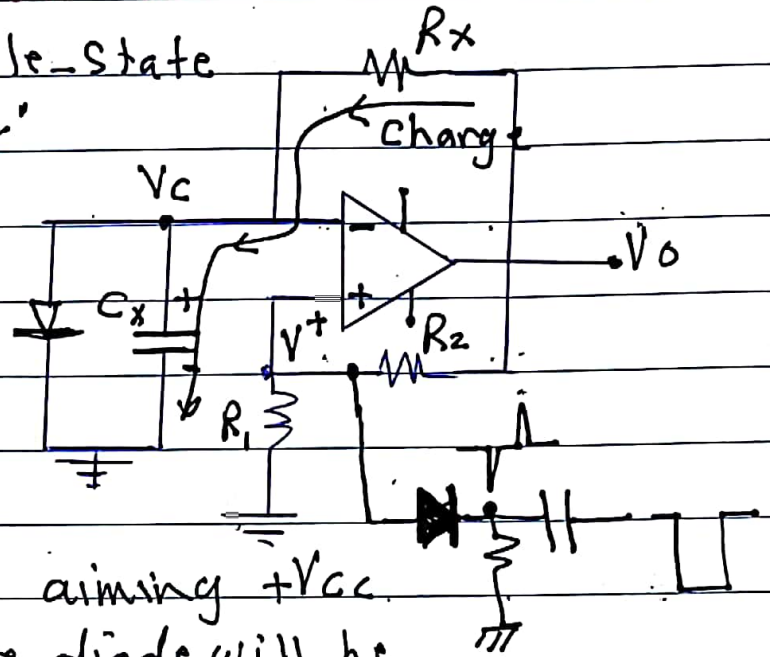 le-State
Rx
Charge
Vc
Vo
-
+
Cx
+
-
V+
R2
R1
aiming +Vcc
diode will be